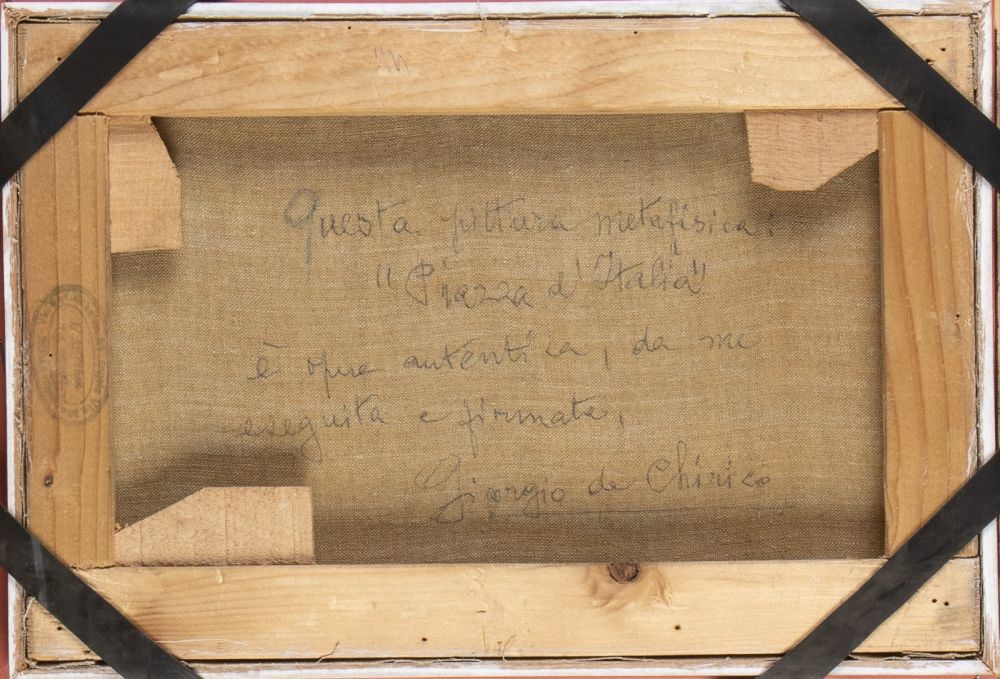 Questa pittura metafisica:
"Piazza d'Italia"
è opera autentica, da me
eseguita e firmata,
Giorgio de Chirico